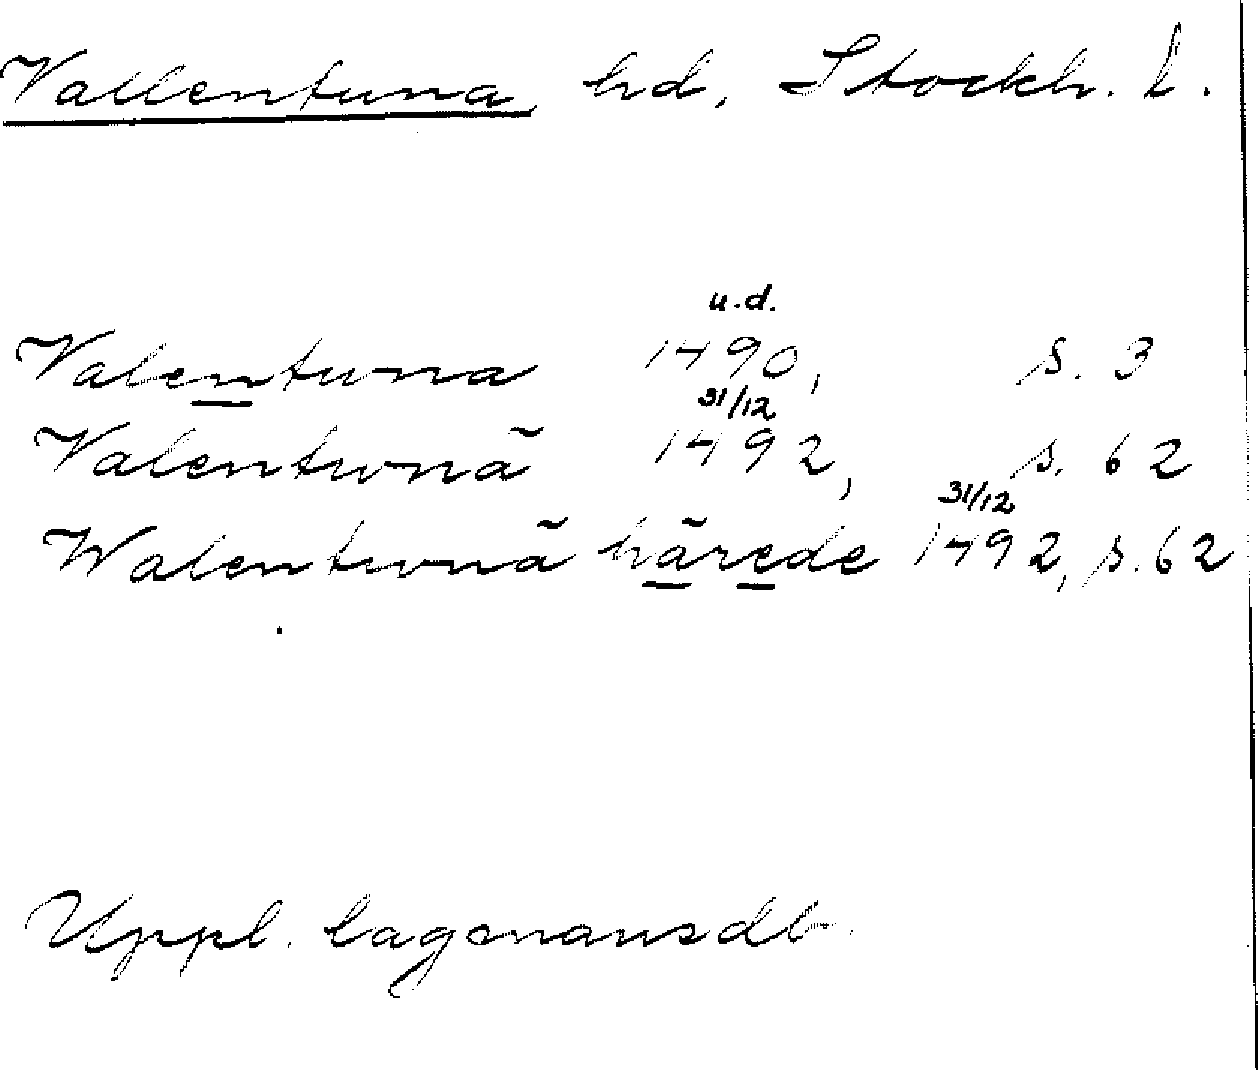 Vallentuna hd, Stockh. l.
u.d.
Valentuna 1490, s. 3
31/12
Valentunä 1492, s. 62
31/12
Walentunä härede 1492, s. 62
Uppl. lagmansdb.